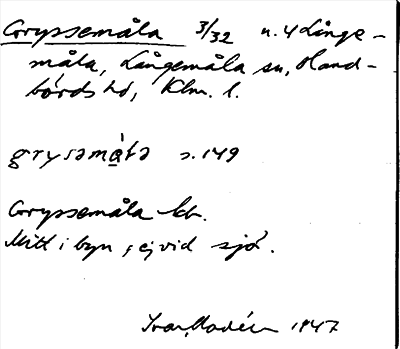 Gryssemåla 3/32 n. 4 Långe-
måla, Långemåla sn, Hand-
börds hd, Klm. l.
grysəmɑ̀lə s. 149
Gryssemåla
Mitt i byn, ej vid sjö.
Ivar Modéer 1947